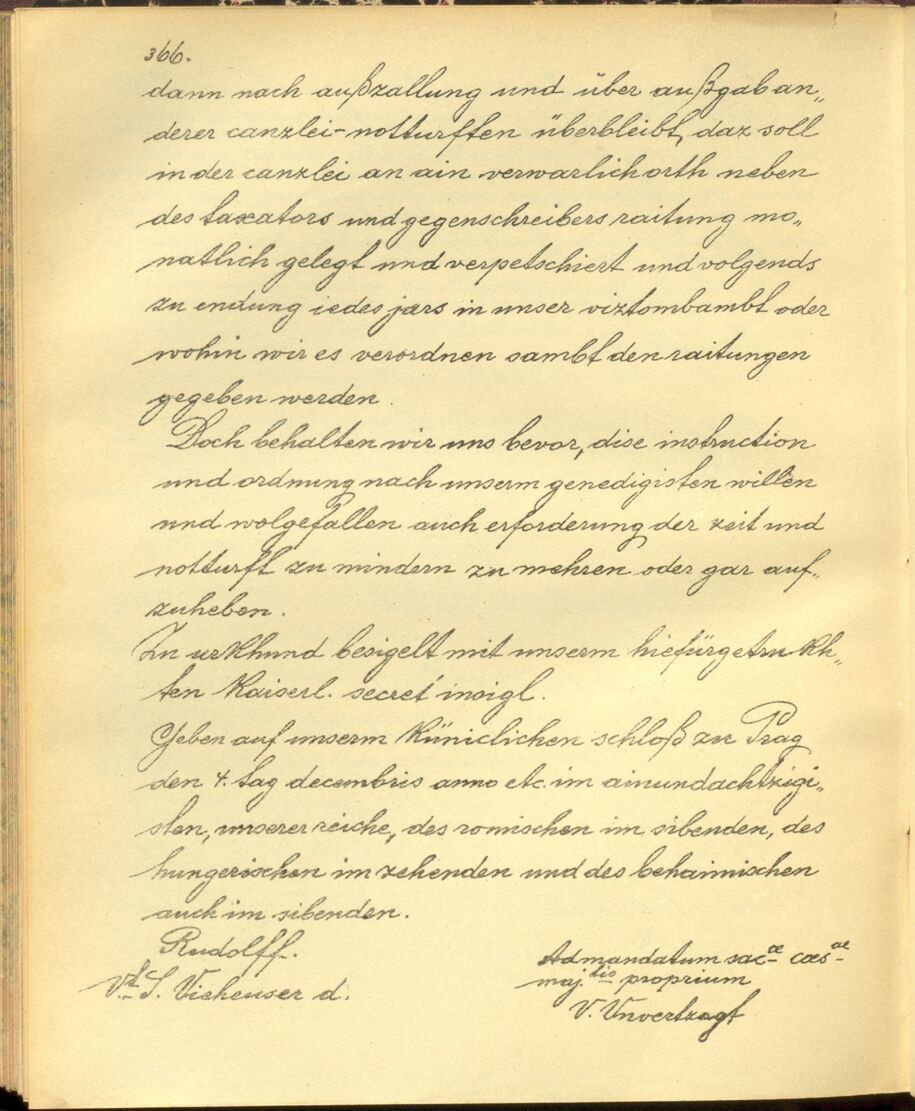 366.
dann nach außzallung und über außgab an„
derer canzlei-notturften überbleibt, daz soll
in der canzlei an ain verwarlich orth neben
des taxators und gegenschreibers raitung mo„
natlich gelegt und verpetschiert und volgends
zu endung iedes jars in unser viztombambt oder
wohin wir es verordnen sambt den raitungen
gegeben werden.
Doch behalten wir uns bevor, dise instruction
und ordnung nach unserm genedigisten willen
und wolgefallen auch erforderung der zeit und
notturft zu mindern zu mehren oder gar auf„
zuheben.
Zu urkhund besigelt mit unserm hiefürgetrukh„
ten kaiserl. secret insigl.
Geben auf unserm küniclichen schloß zu Prag
den 4. tag decembris anno etc. im ainundachtzigi„
sten, unserer reiche, des romischen im sibenden, des
hungerischen im zehenden und des behaimischen
auch im sibenden.
Rudolff.
Vt. S. Vieheuser d.
Ad mandatum sacae caesae
majtis proprium
V. Unvertzagt